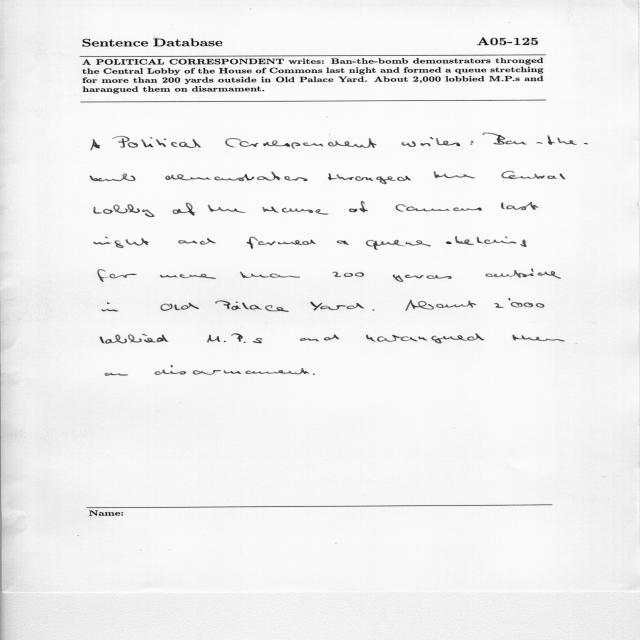 Sentence Database A05-125
A POLITICAL CORRESPONDENT writes: Ban-the-bomb demonstrators thronged
the Central Lobby of the House of Commons last night and formed a queue stretching
for more than 200 yards outside in Old Palace Yard. About 2,000 lobbied M.P.s and
harangued them on disarmament.
A Political Correspondent writes: Ban-the-
bomb demonstrators thronged the Central
Lobby of the House of Commons last
night and formed a queue stretching
for more than 200 yards outside
in Old Palace Yard. About 2'000
lobbied M.P.s and harangued them
on disarmament.
Name: